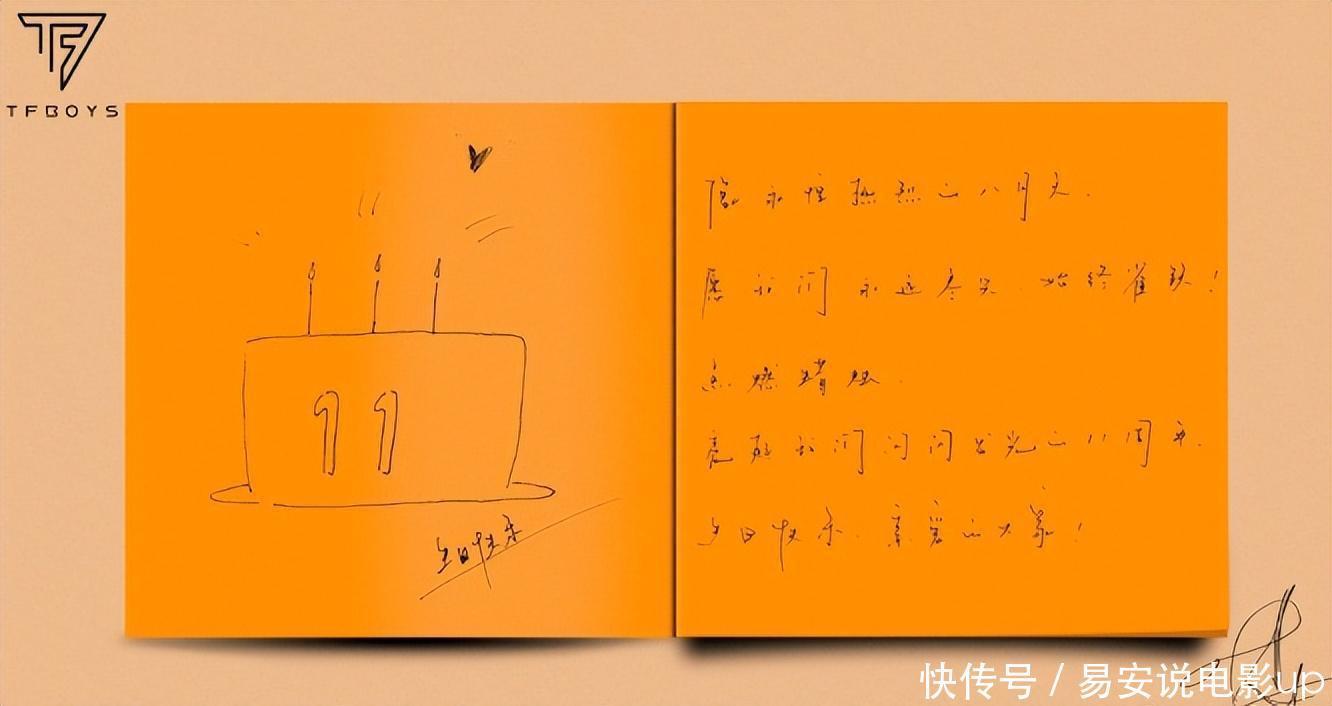 TFBOYS
11
生日快乐
永恒热烈的八月天.
愿我们永远 始终雀跃!
点燃蜡烛.
亮起我们闪闪发光的11周年.
生日快乐.亲爱的大家!
快传号 / 易安说电影up